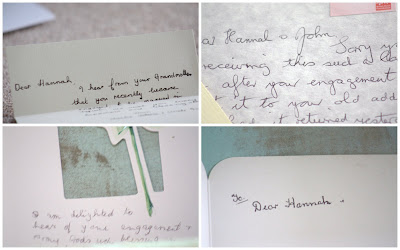 Dear Hannah,
I hear from your Grandmother
that you recently became
ar Hannah & John
Sorry yo
receiving this such a
after your engagement
t it to your old add
it returned yesterd
I am delighted to
hear of your engagement &
many Gods
To
Dear Hannah